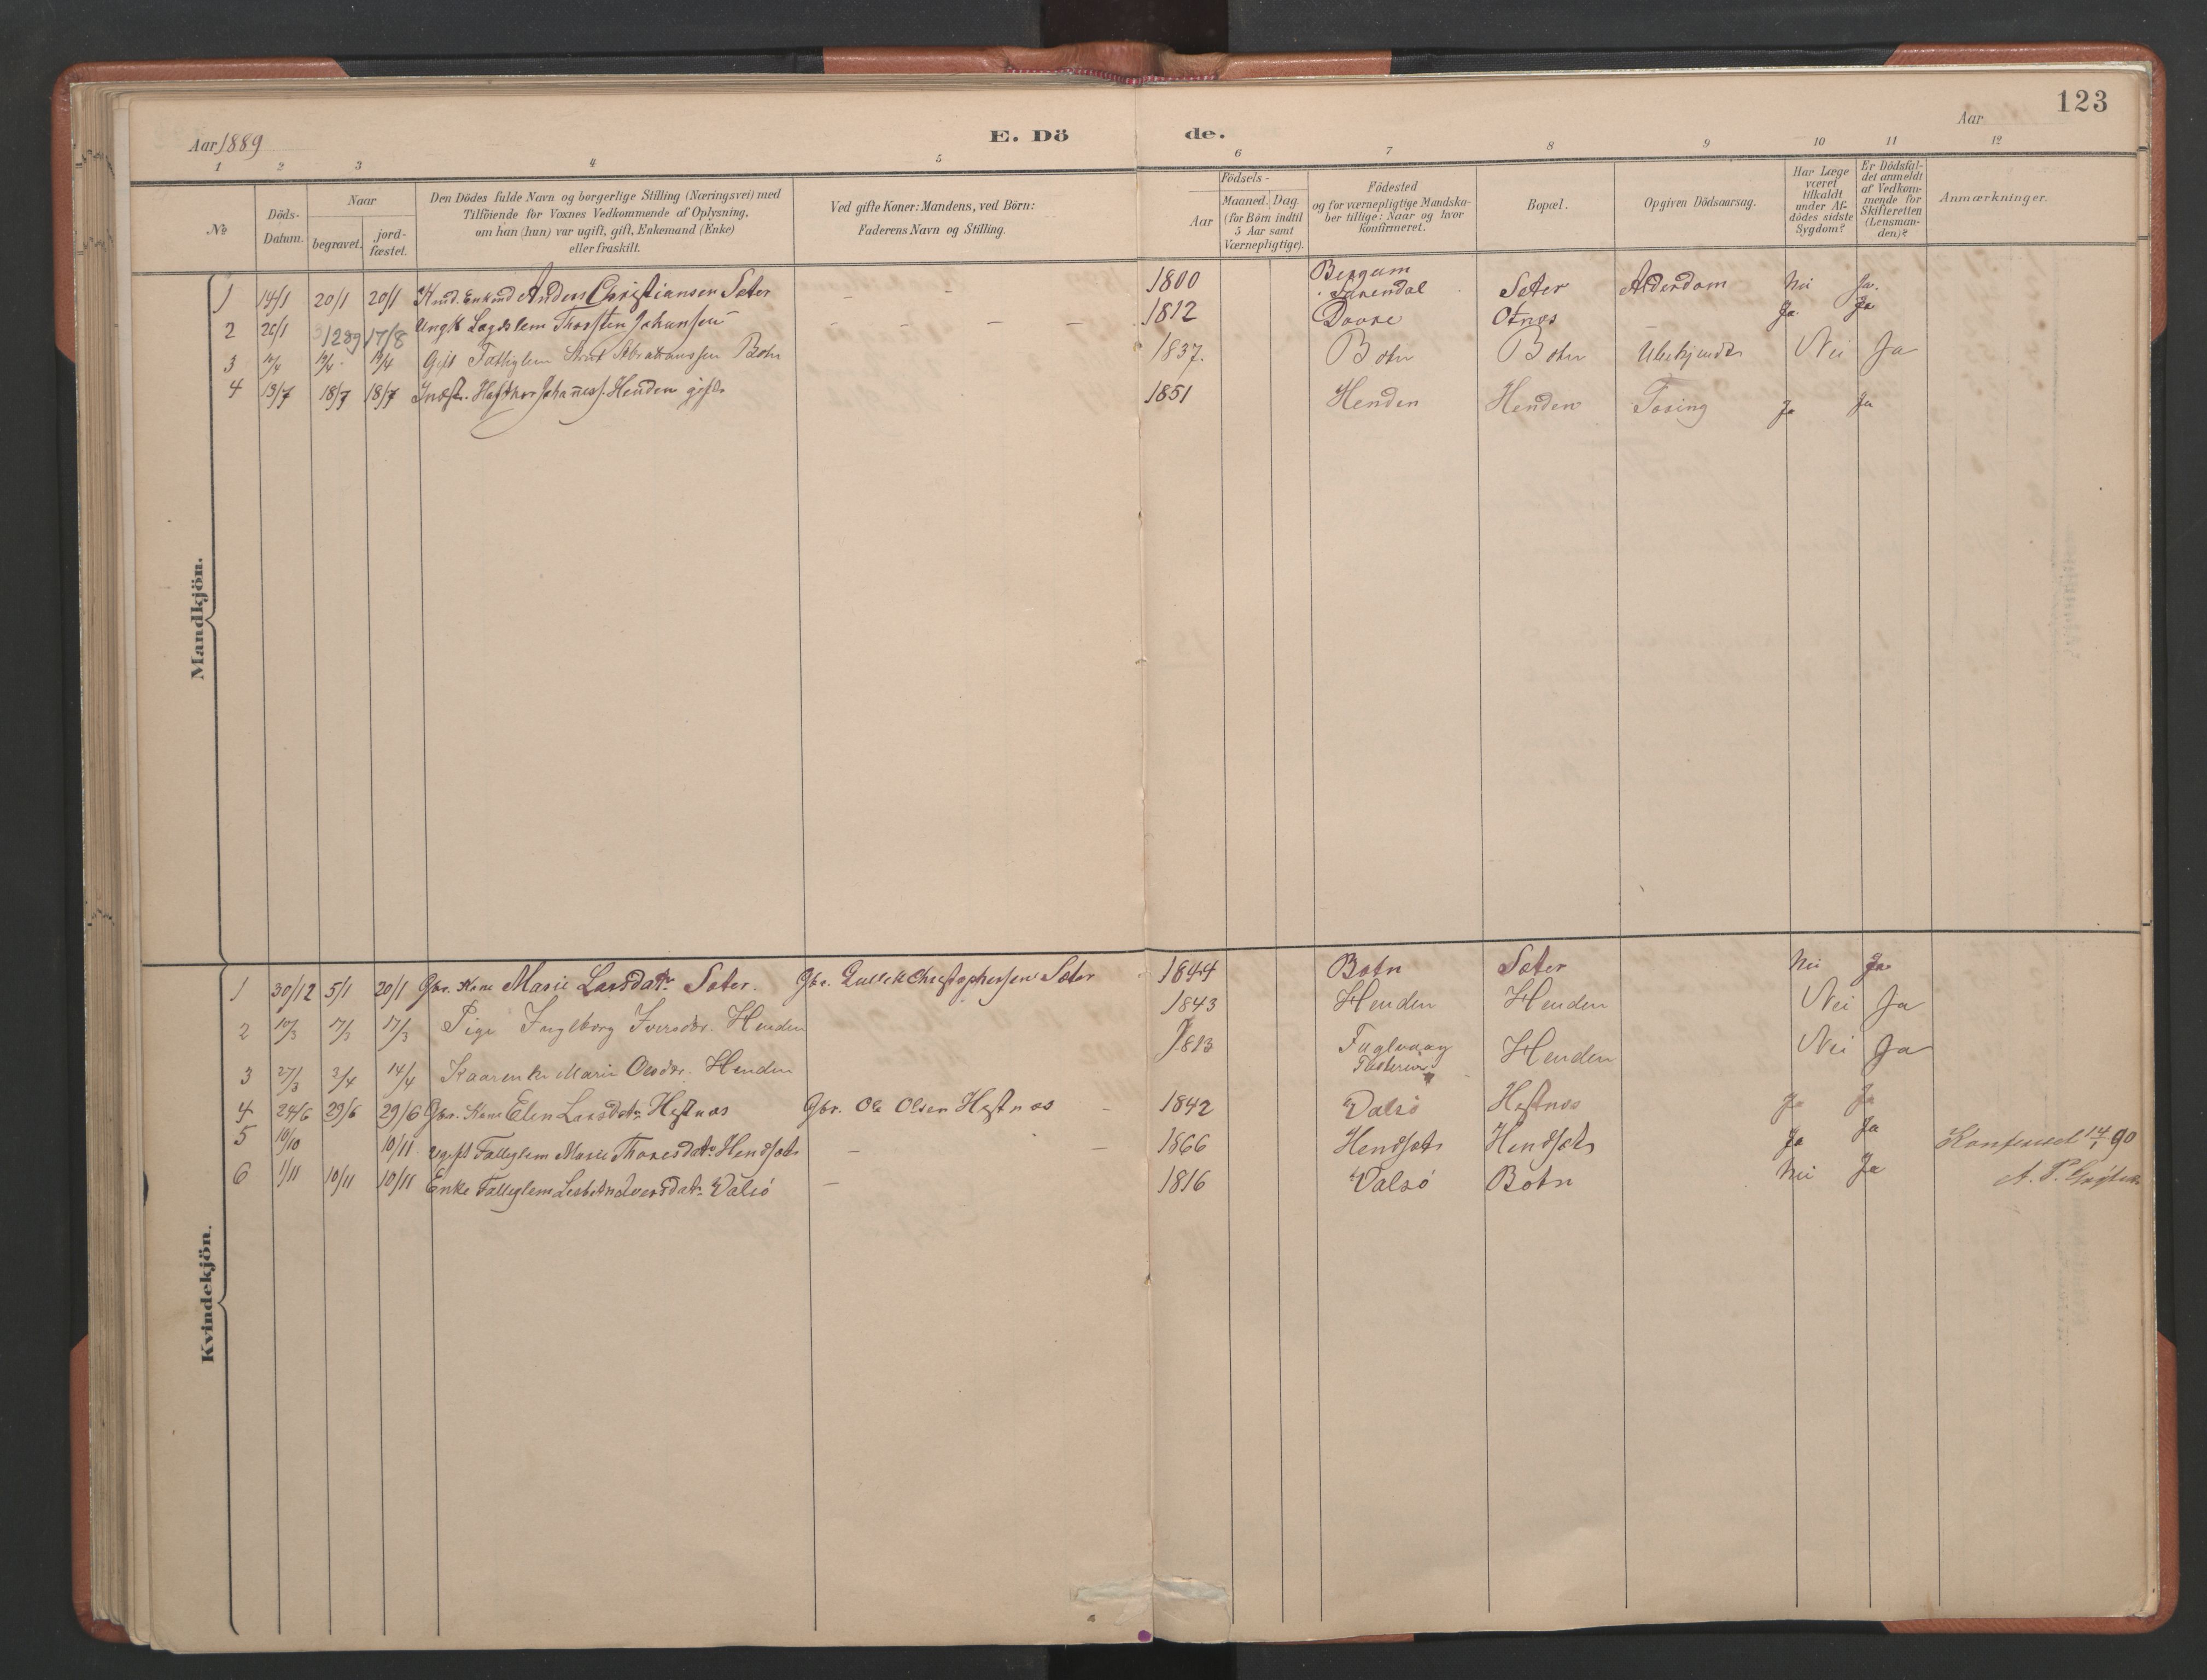 123
Aar 1889
E. Dö
de.
Aar
1 2 3 4 5 6 7 8 9 10 11 12
№
Döds-
Datum.
Naar
begravet.
jord-
fæstet.
Den Dödes fulde Navn og borgerlige Stilling (Næringsvei) med
Tilföiende for Voxnes Vedkommende af Oplysning,
om han (hun) var ugift, gift, Enkemand (Enke)
eller fraskilt.
Ved gifte Koner: Mandens, ved Börn:
Faderens Navn og Stilling.
Födsels-
Aar
Maaned. Dag.
(for Börn indtil
5 Aar samt
Værnepligtige).
Födested
og for værnepligtige Mandska-
ber tillige: Naar og hvor
konfirmeret.
Bopæl.
Opgiven Dödsaarsag.
Har Læge
været
tilkaldt
under Af-
dödes sidste
Sygdom?
Er Dödsfal-
det anmeldt
af Vedkom-
mende for
Skifteretten
(Lensman-
den)?
Anmærkninger.
Mandkjön.
1 14/1 20/1 20/1 Anders Christiansen Sæter – – 1800 Sæter Alderdom Nei Ja.
2 26/1 17/8 Ungk Lægdslem Thorsten Johansen – – – – 1812 Dovre Otnæs – Ja Ja
3 Gift Fattiglem Abrahamssen Botn 1837. Botn Botn Ubekjendt Nei Ja
4 13/7 18/7 18/7 Johanness. Henden gift 1851 Henden Henden Tæring Ja Ja
Kvindekjön.
1 30/12 5/1 20/1 Gbr. Kone Marie Larsdatr Sæter. Gbr. Gullik Christophersen Sæter 1844 Botn Sæter Nei Ja
2 10/3 17/3 17/3 Pige Ingeborg Iversdr. Henden 1843 Henden Henden Nei Ja
3 27/3 3/4 14/4 Marie Olsdr. Henden 1813 Fuglvaag
Henden Nei Ja
4 24/6 29/6 29/6 Gbr. Kone Elen Larsdatr Hestnæs Gbr. Ole Olsen Hestnæs – 1842 Valsö Hestnæs Ja Ja
5 10/10 10/11 Ugift Fattiglem Marie Thoresdatr Hendsæt – – 1866 Hendsæt Hendsæt Ja Ja Konfereret 14/1 90
6 1/11 10/11 10/11 Enke Fattiglem Iversdatr Valsö – 1816 Valsö Botn Nei Ja A. P.